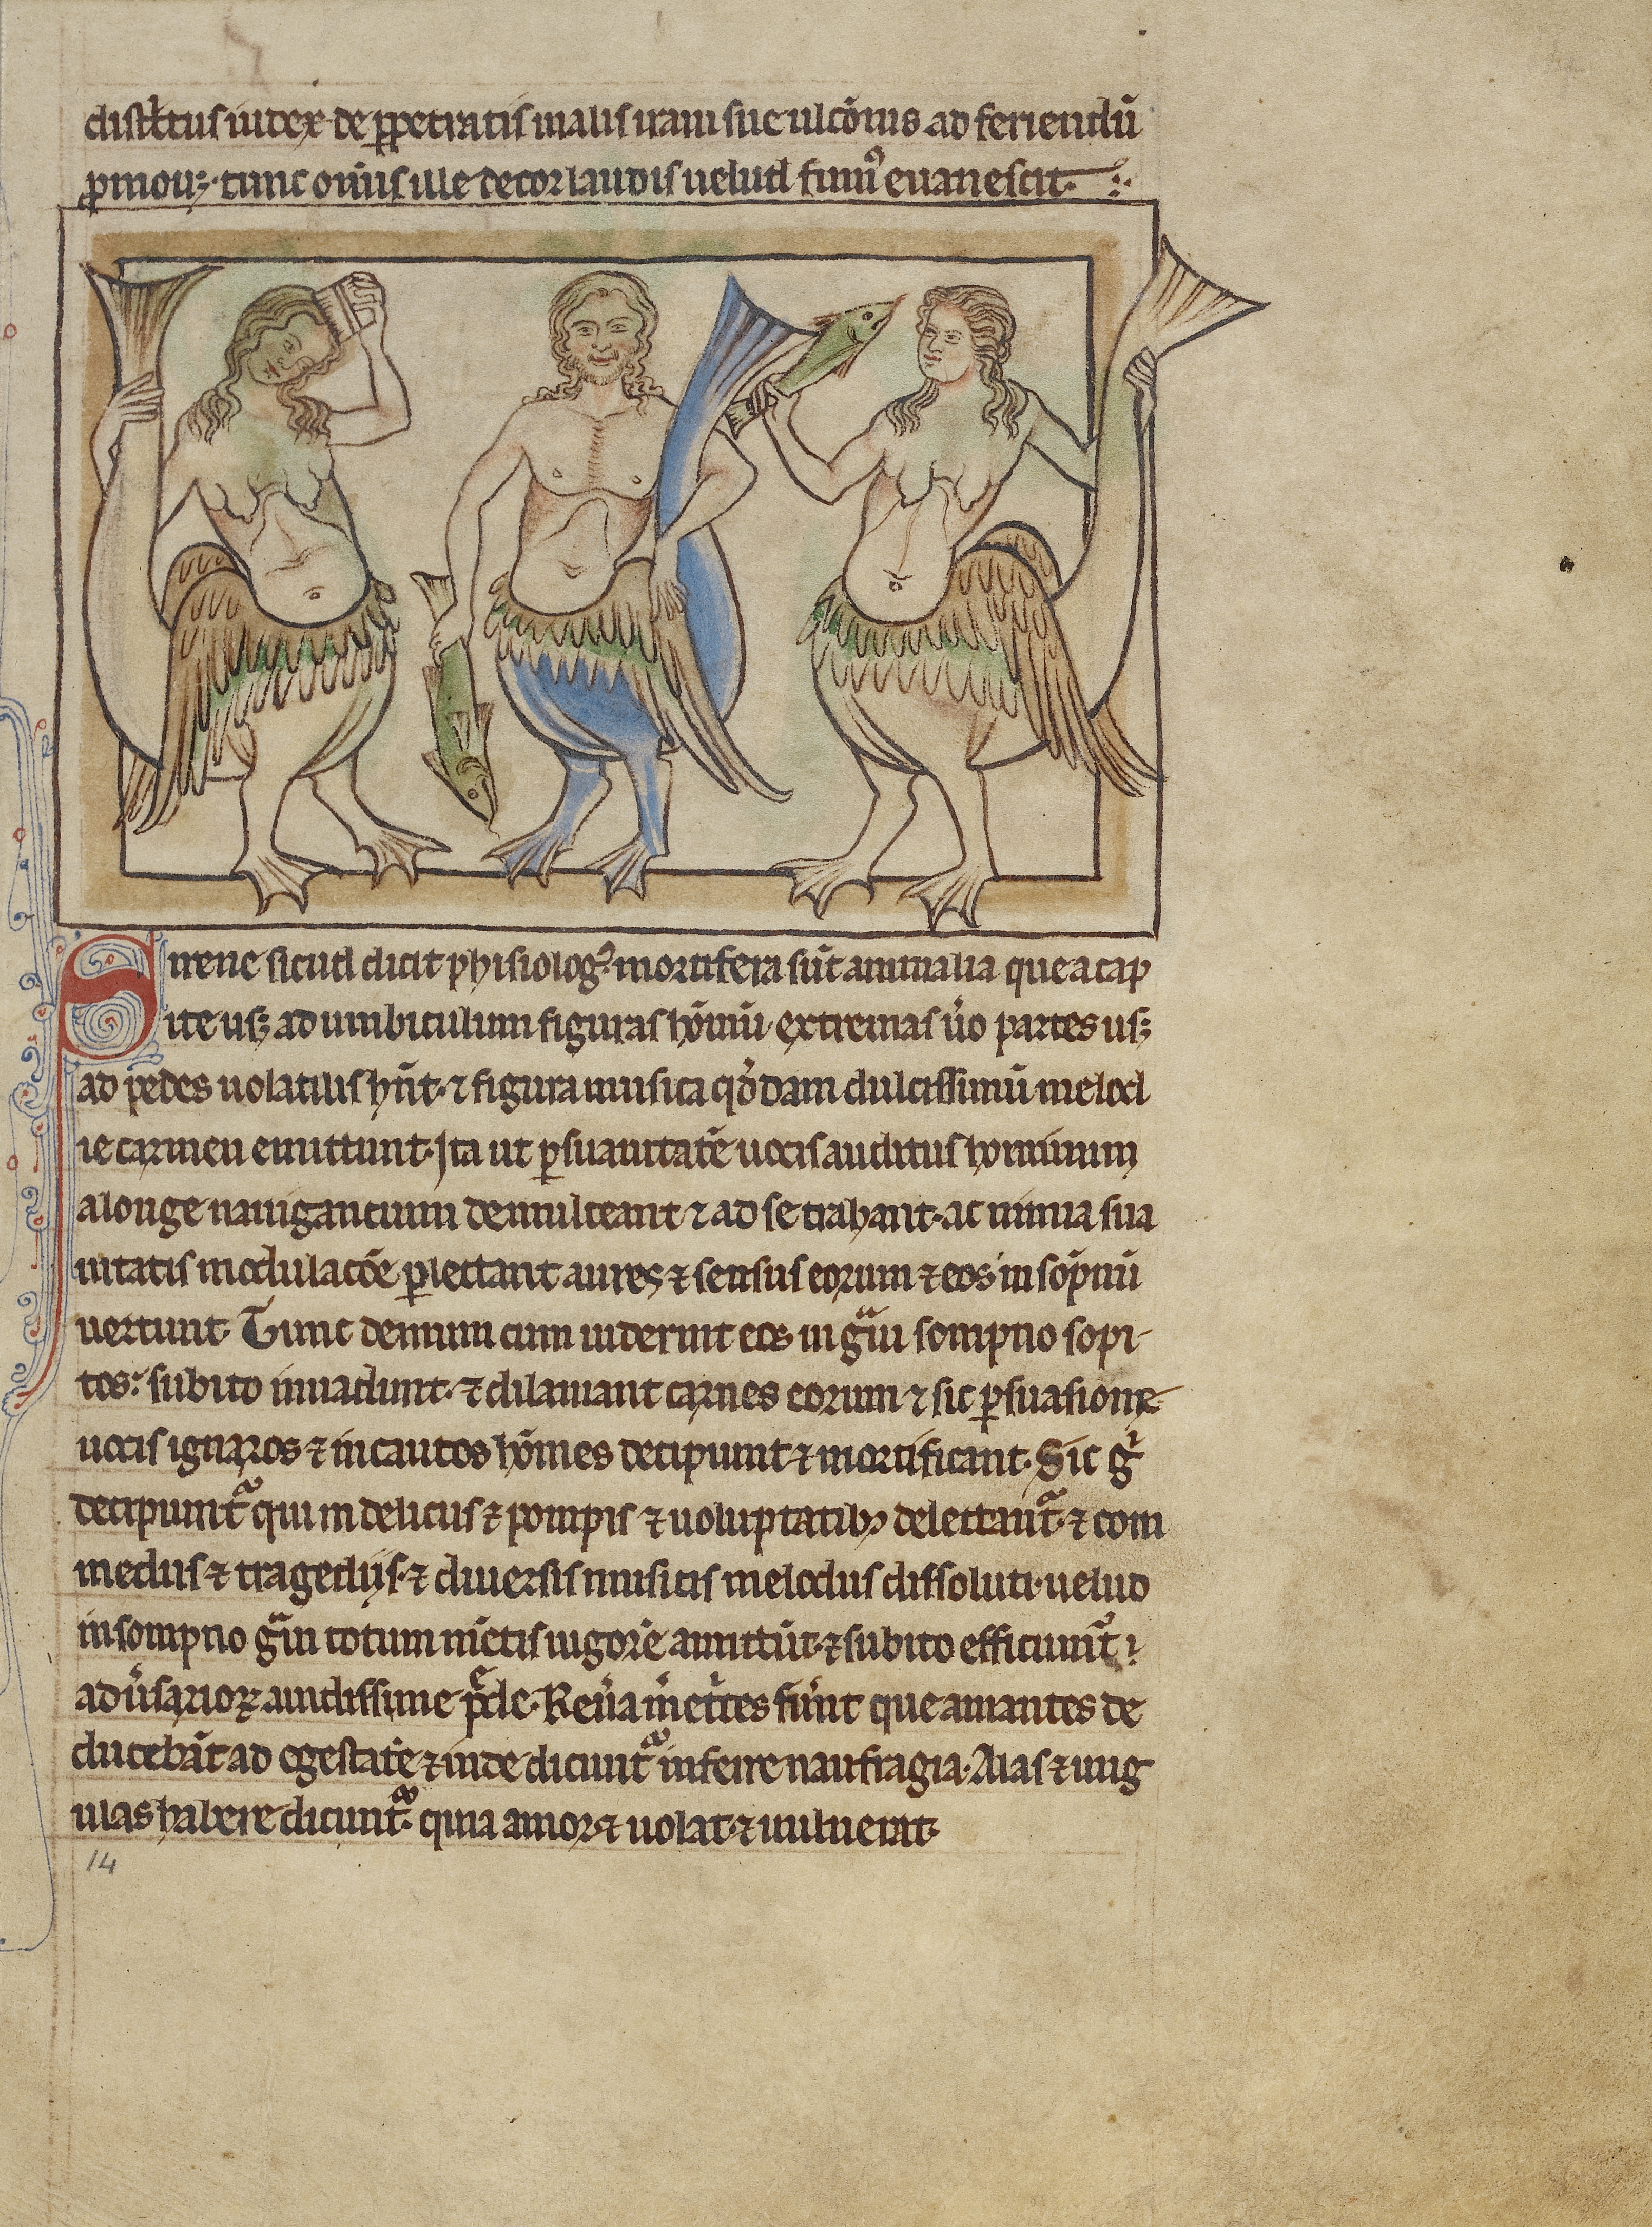 distͥctus iudex de ꝑpetratis malis iram sue ulcōnis ad feriendū
ꝓmouꝫ· tunc om̄is ille decor laudis uelud fumꝰ euanescit·
Sirene sicud dicit phisiologꝰ mortifera sūt animalia que a cap
ite usꝫ ad umbiculum figuras hōinū· extremas u͛o partes usꝫ
ad pedes uolatilis hn̄t· ⁊ figura musica qͦddam dulcissimū melod
ie carmen emittunt· Ita ut ꝑ suauitatē uocis auditus hominum
a longe nauigancium demulceant ⁊ ad se trahant· ac nimia sua
uitatis modulacōe ꝑlectant aures ⁊ sensus eorum ⁊ eos in sōpnū
uertunt· Tunc demum cum uiderint eos in gͣui sompno sopi
tos: subito inuadunt· ⁊ dilaniant carnes eorum ⁊ sic ꝑsuasione
uocis ignaros ⁊ incautos hōines decipiunt ⁊ mortificant· Sic gͦ
decipiuntᷣ qui in deliciis ⁊ pompis ⁊ uoluptatibꝫ delectantᷣ· ⁊ com
mediis ⁊ tragediis· ⁊ diuersis musicis melodiis dissoluti· uelud
in sompno gͣui totum mētis uigorē amittūt· ⁊ subito efficiuntᷣ
adu͛sarioꝝ auidissime p̄de· Reu͛a m͛et͛ces fu͛nt que amantes de
ducebāt ad egestatē ⁊ inde dicuntᷣ inferre naufragia· Alas ⁊ ung
ulas habere dicuntᷣ· quia amor ⁊ uolat· ⁊ uulnerat·
14